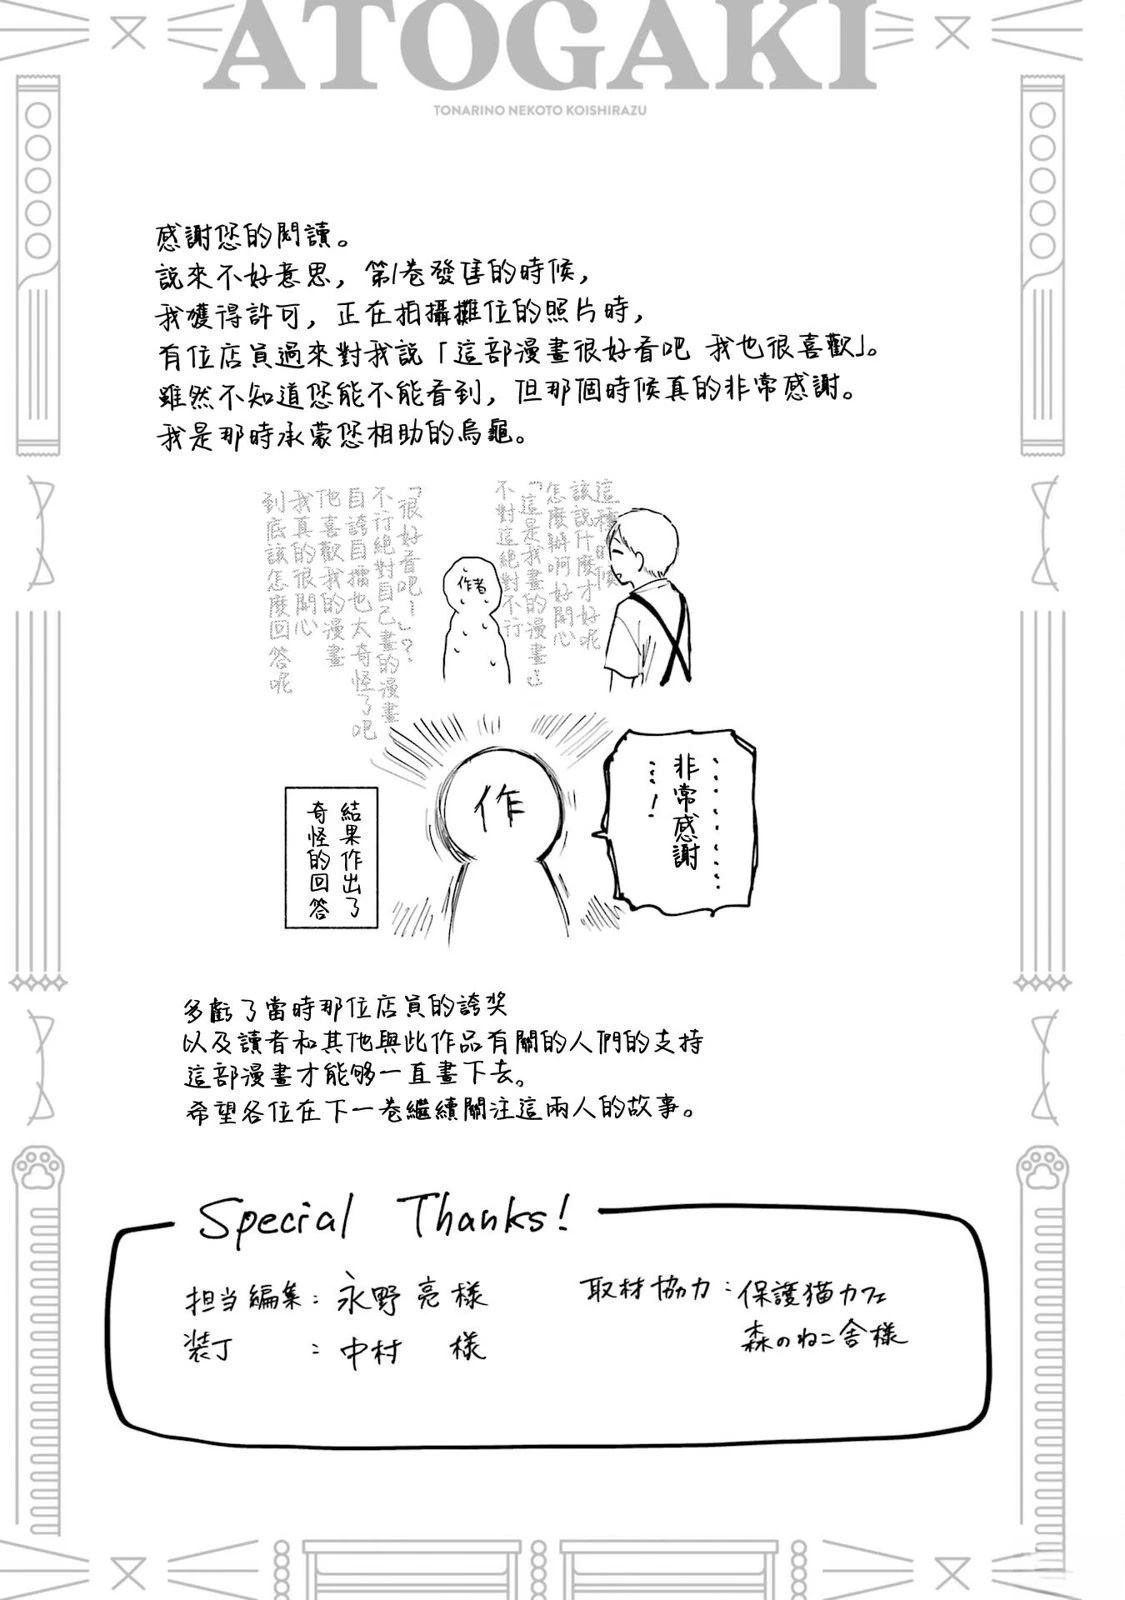 ATOGAKI
TONARINO NEKOTO KOISHIRAZU
感謝您的閱讀。
說來不好意思，第1卷發售的時候，
我獲得許可，正在拍攝攤位的照片時，
有位店員過來對我說「這部漫畫很好看吧 我也很喜歡」。
雖然不知道您能不能看到，但那個時候真的非常感謝。
我是那時承蒙您相助的烏龜。
這種時候
該說什麼才好呢
怎麼辦啊好開心
「這是我畫的漫畫」
不對這絕對不行
作者
「很好看吧ー」？
不行絕對自己畫的漫畫
自誇自擂也太奇怪了吧
他喜歡我的漫畫
我真的很開心
到底該怎麼回答呢
………
非常感謝
…！
作
結果作出了
奇怪的回答
多虧了當時那位店員的誇奖
以及讀者和其他與此作品有關的人們的支持
這部漫畫才能够一直畫下去。
希望各位在下一卷繼續關注這兩人的故事。
Special Thanks!
担当編集：永野亮様
装丁　　：中村　様
取材協力：保護猫カフェ
森のねこ舎様